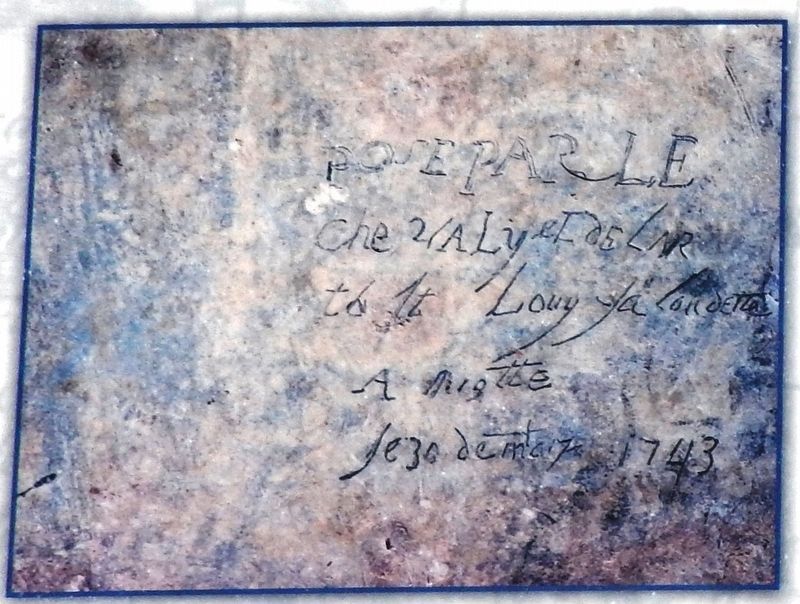 POSE PAR LE
Che VALyet DE LaVR
to St Louy La Londette
A miotte
Le 30 de mars 1743